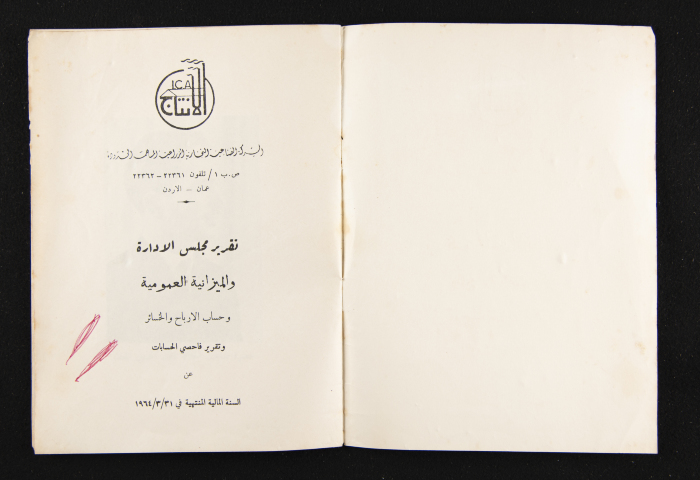 I.C.A
الانتاج
الشركة الصناعية التجارية الزراعية المساهمة المحدودة
ص.ب ١ / تلفون ٢٢٣٦١ - ٢٢٣٦٢
عمان - الاردن
تقرير مجلس الادارة
والميزانية العمومية
وحساب الارباح والخسائر
وتقرير فاحصي الحسابات
عن
السنة المالية المنتهية في ١٩٦٤/٣/٣١